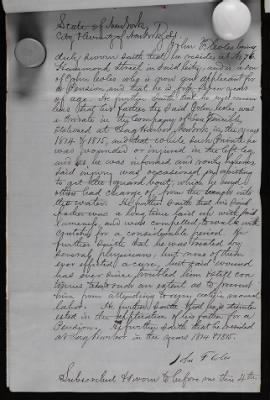 State of New York
City & County of New York SS
John F. Coles being
duly sworn saith that he resides at No 76
Hammond Street in said city, and is a son
of John Coles who is now an applicant for
a Pension and that he is fifty seven years
of age. He further saith that he
that his father the said John Coles was
a Private in the Company of
stationed at Sag Harbor New York in the years
1814 & 1815, and that while such Private he
was wounded or injured in the left leg
and as he was informed and verily believes
said injury was occasioned by
to get the Guard boat, which he had
charge of, from the beach into
the water. He further saith that his said
father was a long time laid up with said
lameness and was compelled to walk with
crutches for a considerable period. He
further saith that he was treated by
several physicians but none of them
ever effected a cure, but said wound
has ever since troubled him & still con
tinues to such an extent as to prevent
him from attending to very active manual
labor. He further saith
ested in the application of his father for a
Pension. He further saith that he resided
at Sag Harbor in the years 1814 & 1815.
John F Coles
Subscribed & sworn to before me this 4th